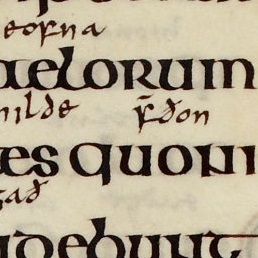 eofna
aelorum
milde f̄ðon
tes quoni
gað
idebunt